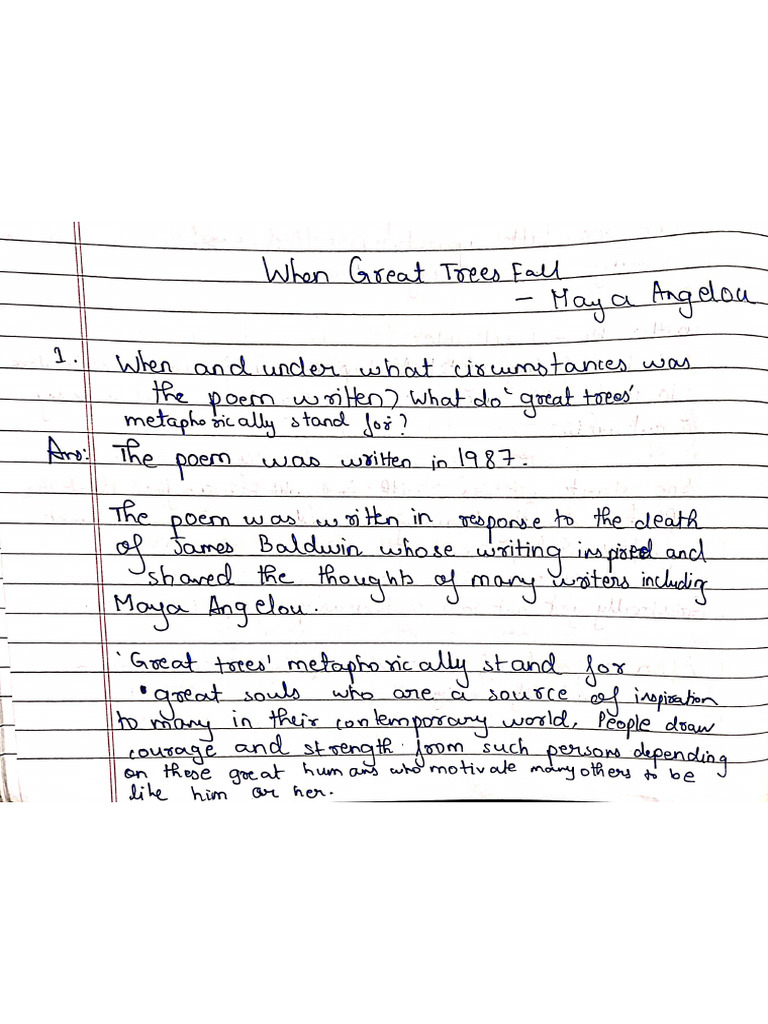 When Great Trees Fall
- Maya Angelou
1. When and under what circumstances was
the poem written? What do 'great trees'
metaphorically stand for?
Ans: The poem was written in 1987.
The poem was written in response to the death
of James Baldwin whose writing inspired and
shaved the thoughts of many writers including
Maya Angelou.
'Great trees' metaphorically stand for
great souls who are a source of inspiration
to many in their contemporary world. People draw
courage and strength from such persons depending
on these great humans who motivate many others to be
like him or her.